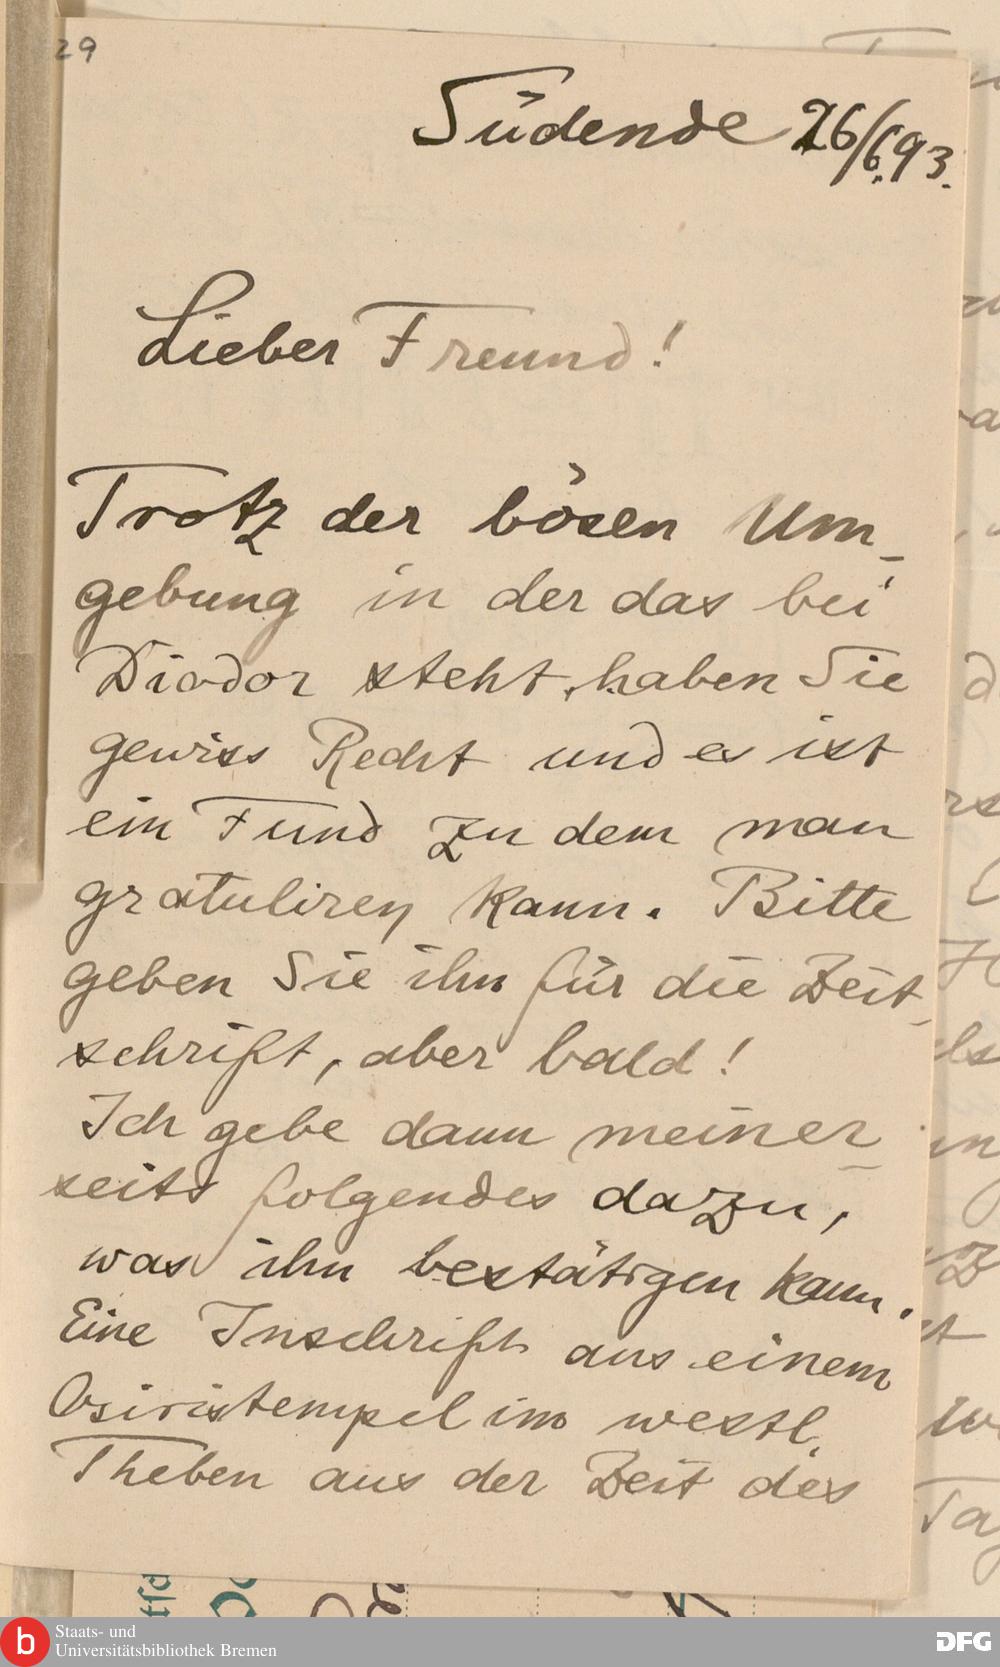 29
Südende 26/6.93.
Lieber Freund!
Trotz der bösen Um-
gebung in der das bei
Diodor steht, haben Sie
gewiss Recht und es ist
ein Fund zu dem man
gratuliren kann. Bitte
geben Sie ihn für die Zeit-
schrift, aber bald!
Ich gebe dann meiner-
seits folgendes dazu,
was ihn bestätigen kann.
Eine Inschrift aus einem
Osiristempel im westl.
Theben aus der Zeit des
b Staats- und
Universitätsbibliothek Bremen
DFG